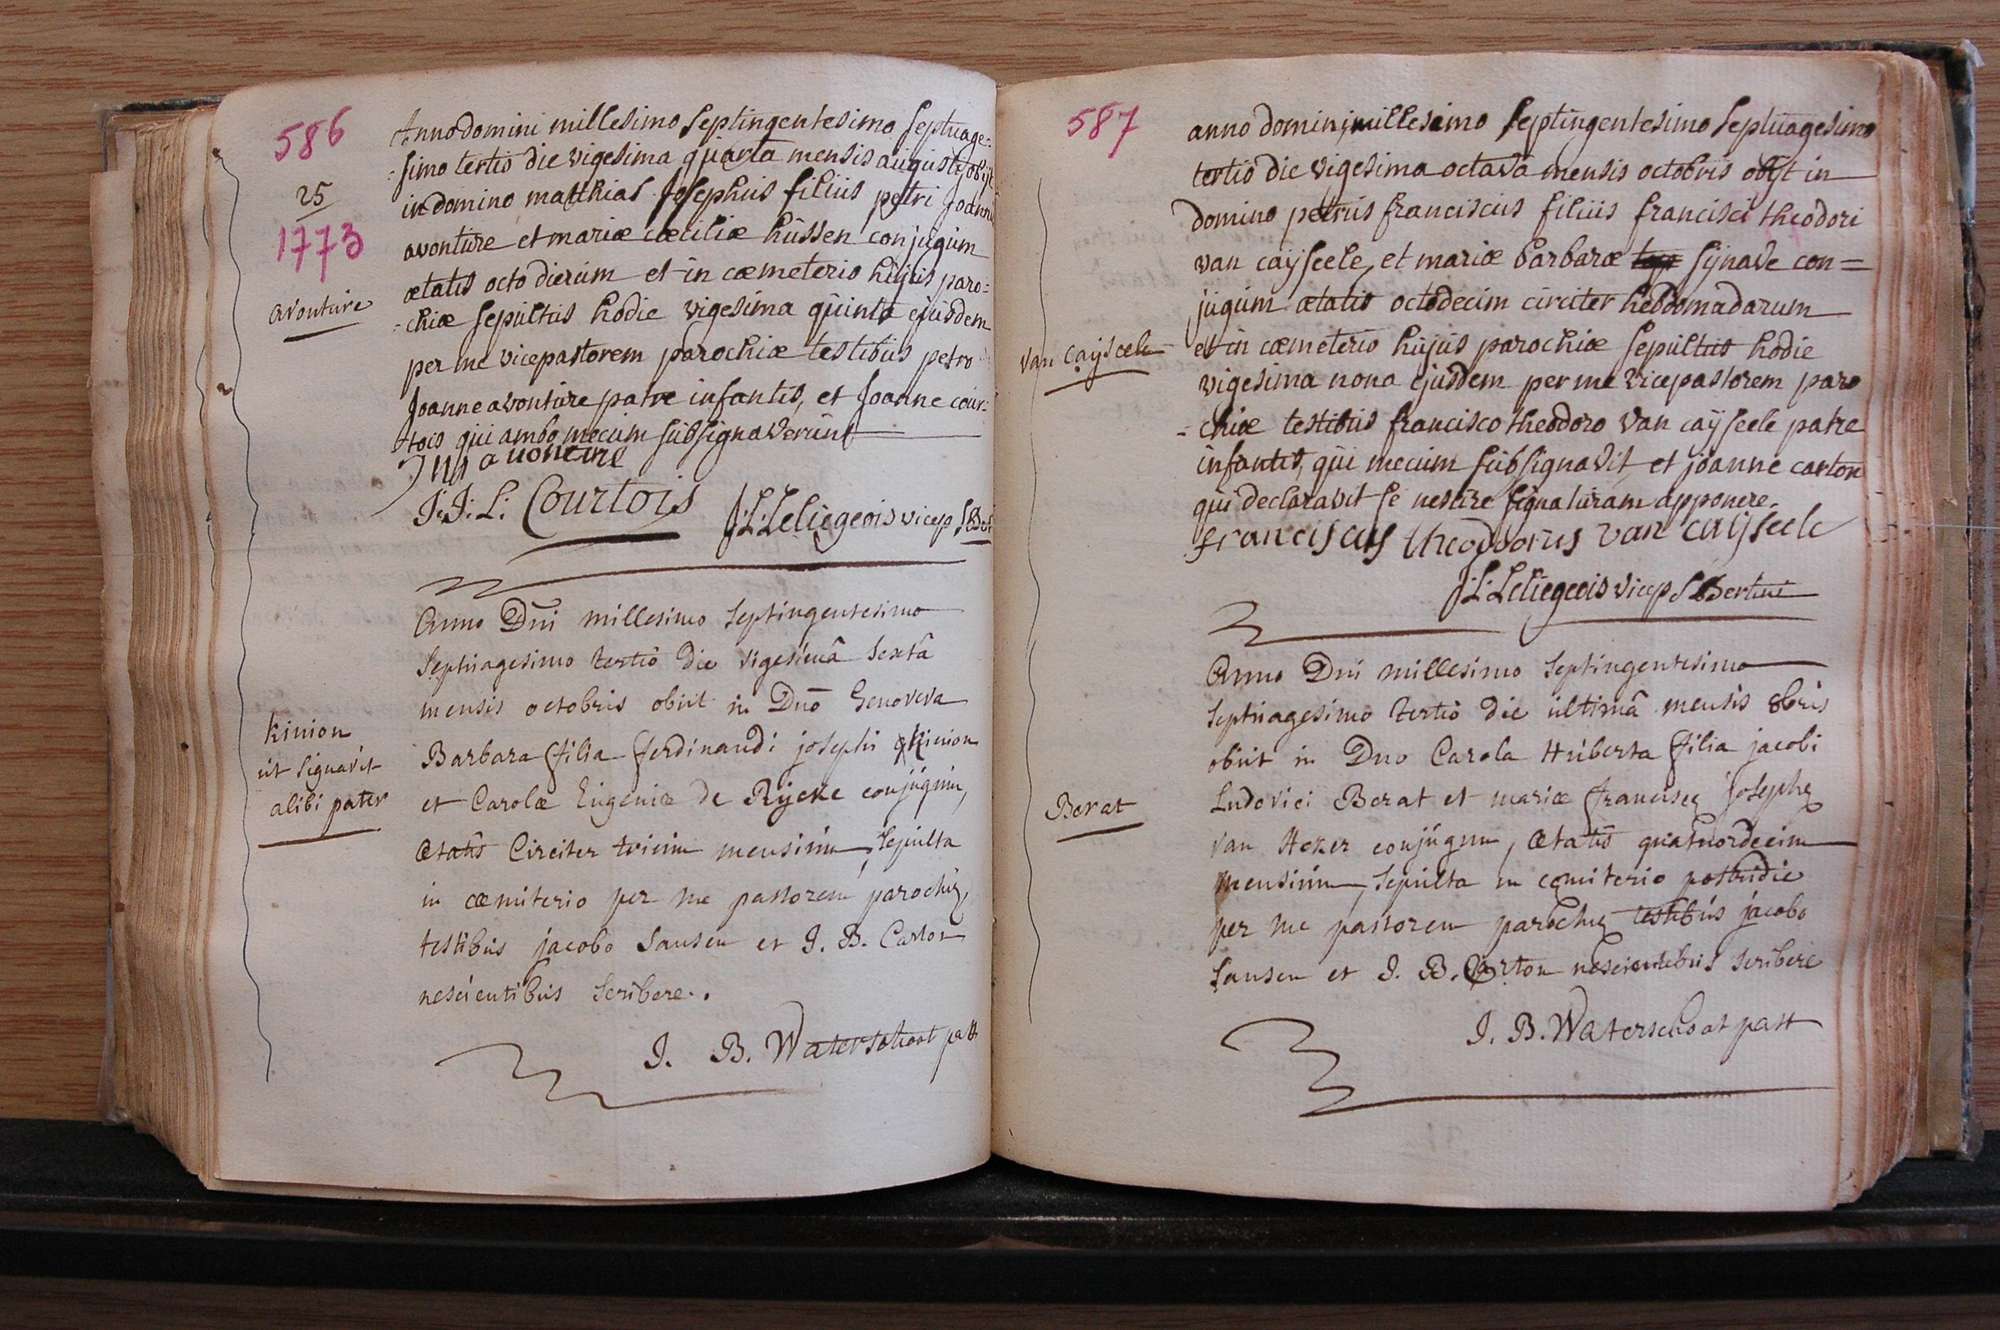 586
25
1773
avonture
Anno domini millesimo septingentesimo septuage=
=simo tertio die vigesima quarta mensis augusti obijt
in domino matthias Josephus filius petri Joannis
avonture et mariæ cæciliæ hussen conjugum
ætatis octo dierum et in cæmeterio hujus paro=
=chiæ sepultus hodie vigesima quinta ejusdem
per me vicepastorem parochiæ testibus petro
Joanne avonture patre infantis, et Joanne cour=
tois qui ambo mecum subsignaverunt
avonture
J. J. L. Courtois J. L. Leliegeois vicep S Bert
kinion
ut signavit
alibi pater
Anno Dni millesimo septingentesimo
septuagesimo tertio die vigesimâ sextâ
mensis octobris obiit in Dno Genoveva
Barbara filia ferdinandi josephi kinion
et Carolæ Eugeniæ de Rijcke conjugum,
Ætatis Circiter trium mensium, sepulta
in cæmiterio per me pastorem parochiæ,
testibus jacobo Sansen et J. B. Carton
nescientibus scribere.
J. B. Waterschoot past
587
van Cayseele
anno domini millesimo septingentesimo septuagesimo
tertio die vigesima octava mensis octobris obijt in
domino petrus franciscus filius francisci theodori
van cayseele, et mariæ barbaræ sijnave con=
jugum ætatis octodecim circiter hebdomadarum
et in cæmeterio hujus parochiæ sepultus hodie
vigesima nona ejusdem per me vicepastorem paro
=chiæ testibus francisco theodoro van cayseele patre
infantis, qui mecum subsignavit, et joanne carton
qui declaravit se nescire signaturam apponere.
franciscus theodorus van caijseele
J. L. Leliegeois vicep S Bertini
Berat
Anno Dni millesimo septingentesimo
septuagesimo tertio die ultimâ mensis 8bris
obiit in Dno Carola Huberta filia jacobi
Ludovici Berat et mariæ franciscæ Josephæ
van Hexer conjugum, Ætatis quatuordecim
mensium, sepulta in cemiterio postridie
per me pastorem parochiæ testibus jacobo
Sansen et J. B. Carton nescientibus scribere
J. B. Waterschoot past